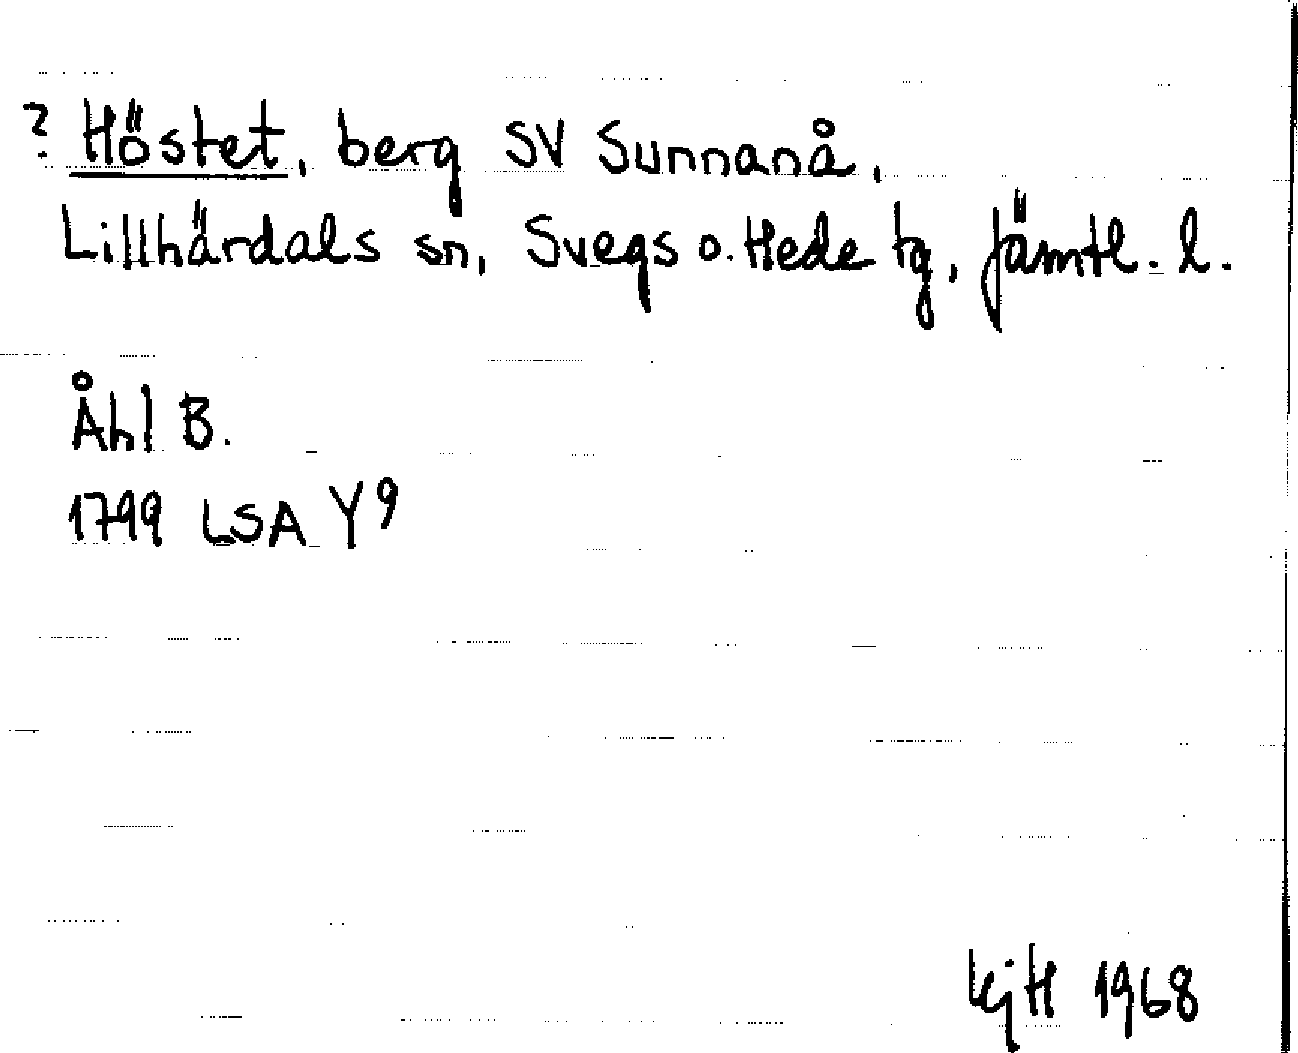 ? Höstet, berg SV Sunnanå,
Lillhärdals sn, Svegs o. Hede tg, Jämtl. l.
Åhl B.
1799 LSA Y9
KjH 1968